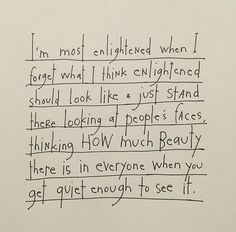 I'm most enlightened when I
forget what I think enlightened
should look like & just stand
there looking at people's faces,
thinking HOW much Beauty
there is in everyone when you
get quiet enough to see it.